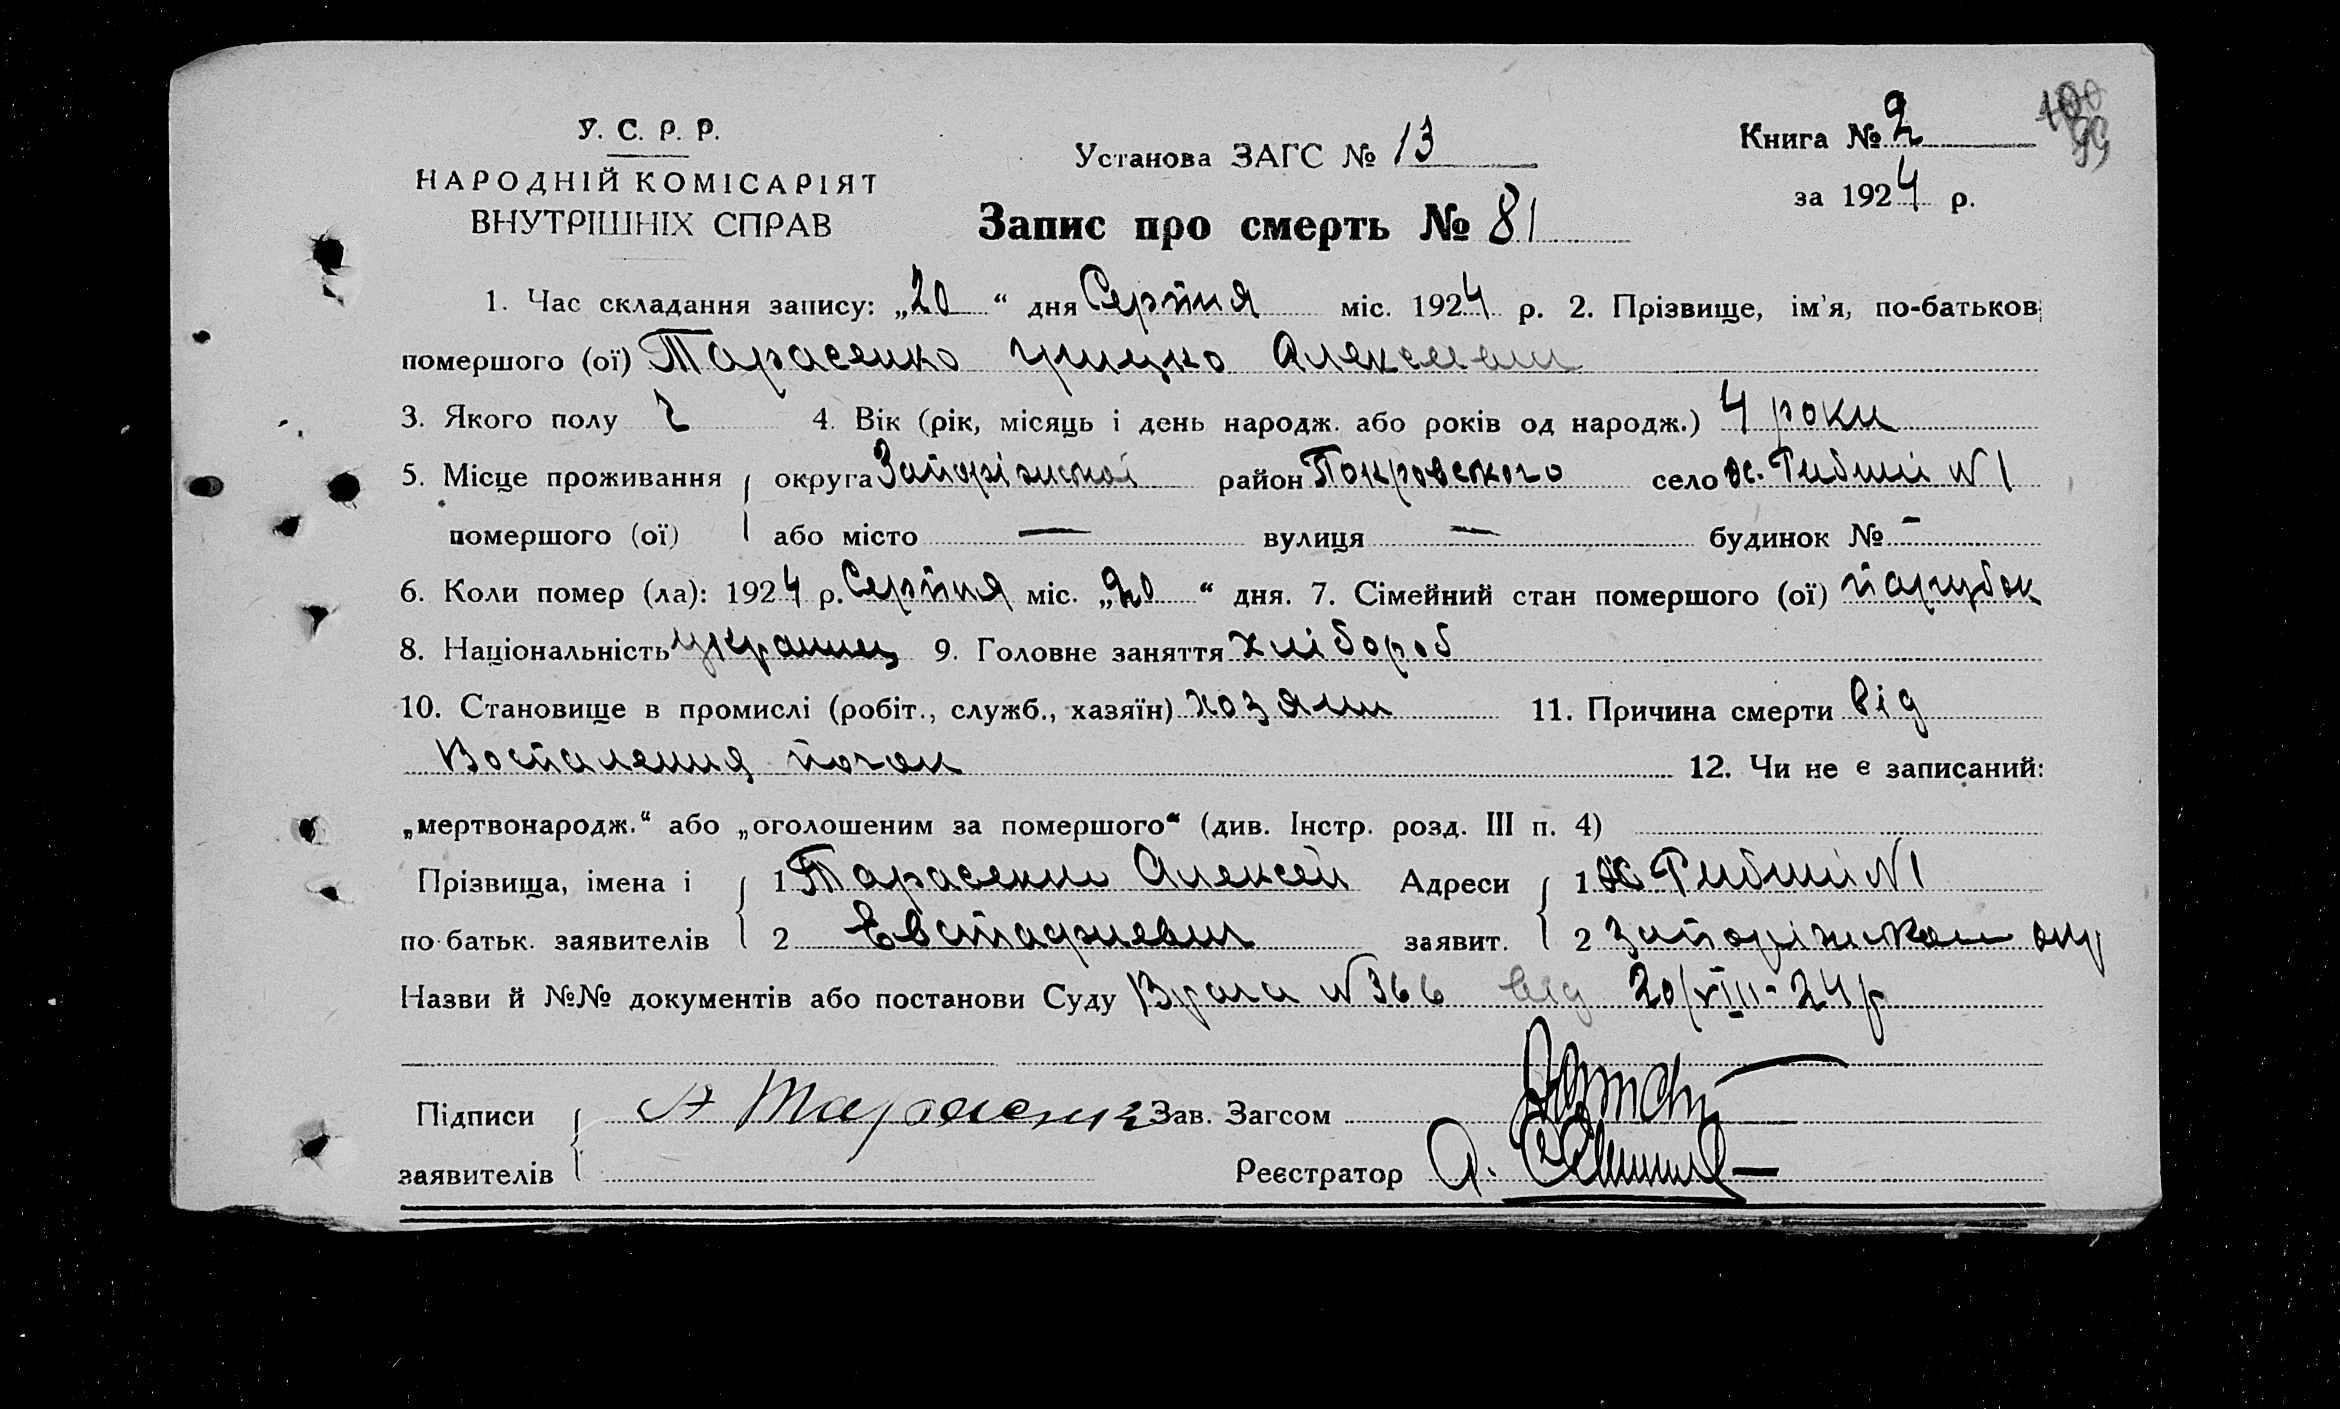 У. С. Р. Р.
НАРОДНІЙ КОМІСАРІЯТ
ВНУТРІШНІХ СПРАВ
Установа ЗАГС № 13
Книга № 2
100
99
за 1924 р.
Запис про смерть № 81
1. Час складання запису: „20“ дня Серпня міс. 1924 р. 2. Прізвище, ім'я, по-батьков
помершого (ої) Тарасенко Грицко
3. Якого полу ч 4. Вік (рік, місяць і день народж. або років од народж.) 4 роки
5. Місце проживання округа Запоріжської район Покровського село № 1
помершого (ої) або місто — вулиця — будинок № -
6. Коли помер (ла): 1924 р. Серпня міс. „20“ дня. 7. Сімейний стан помершого (ої) парубок
8. Національність украинец 9. Головне заняття хлібороб
10. Становище в промислі (робіт., служб., хазяїн) хозяин 11. Причина смерти від
Воспаления почок 12. Чи не є записаний:
„мертвонародж.“ або „оголошеним за помершого“ (див. Інстр. розд. III п. 4)
Прізвища, імена і 1 Тарасенко Алексей Адреси 1 № 1
по-батьк. заявителів 2 Евстафиевич заявит. 2 окр
Назви й №№ документів або постанови Суду Врача № 366 від 20/VIII-24 р
Підписи А Тарасенко Зав. Загсом
заявителів Реєстратор А.